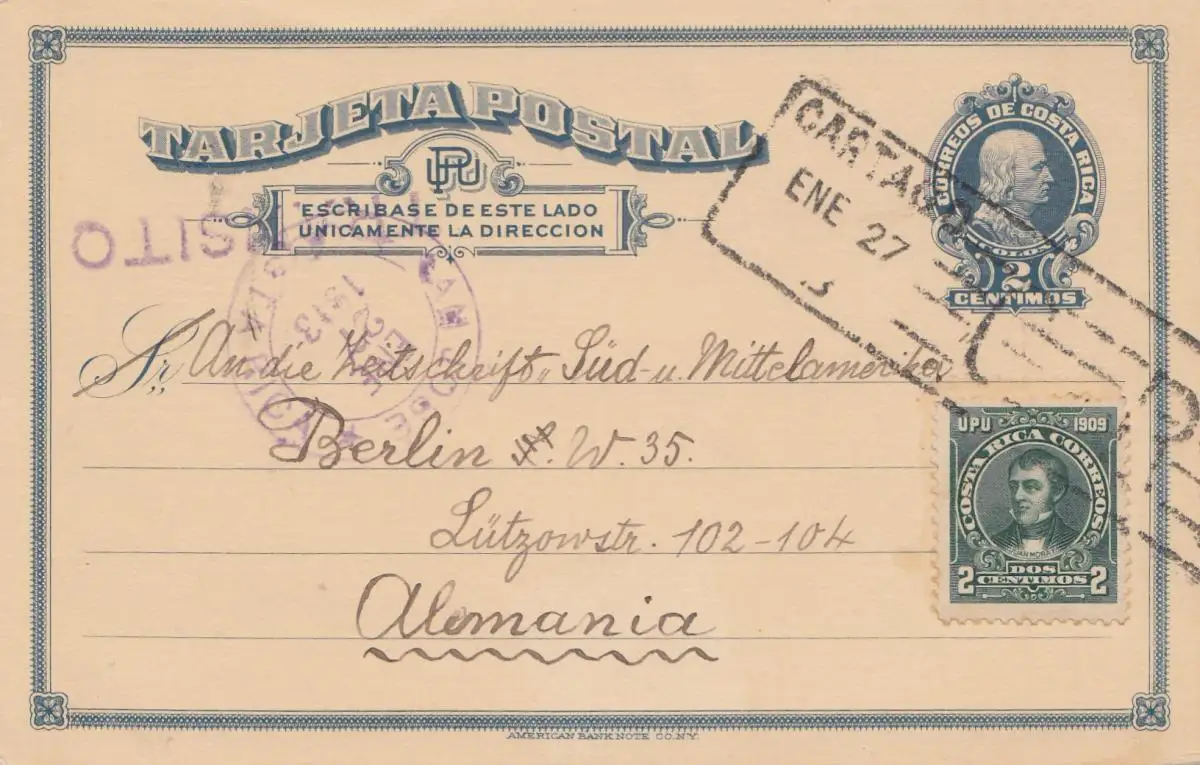 TARJETA POSTAL
UPU
ESCRIBASE DE ESTE LADO
UNICAMENTE LA DIRECCION
CORREOS DE COSTA RICA
COLON
2
CENTIMOS
CARTAGO
ENE 27
SITO
SAN JOSE
COSTA RICA
ENE
1913
Sr. An die Zeitschrift „Süd- u. Mittelamerika
Berlin W. 35.
Lützowstr. 102-104
Alemania
UPU 1909
COSTA RICA CORREOS
JUAN MORA F.
2 DOS CENTIMOS 2
AMERICAN BANK NOTE CO. N.Y.